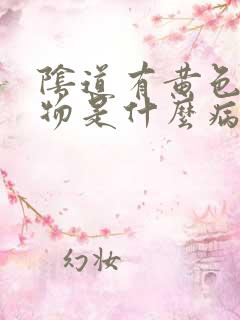 陰道有黄色
物是什麼病
幻妆